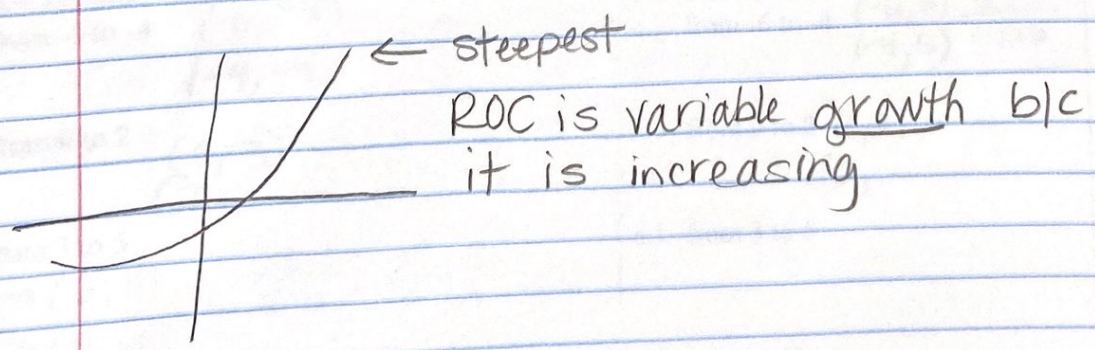 ← steepest
ROC is variable growth b/c
it is increasing